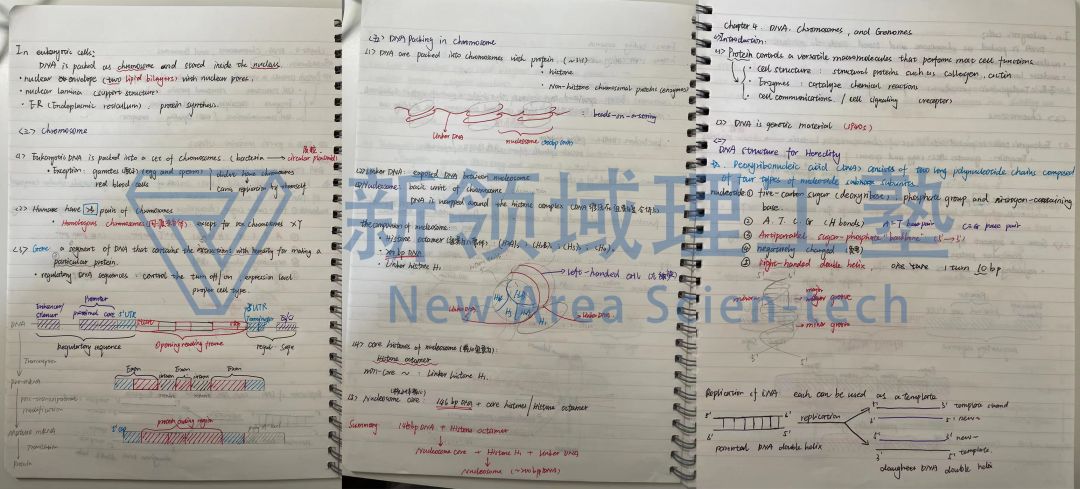 In eukaryotic cells:
DNA is packed as chromosome and stored inside the nucleus
· nuclear envelope (two lipid bilayers) with nuclear pores.
· nuclear lamina (support structure)
· ER (Endoplasmic reticulum). protein synthesis.
<2> Chromosome
(1) Eukaryotic DNA is packed into a set of chromosomes. (bacteria → circular plasmids)
质粒.
· Exception: gametes (egg and sperm)
red blood cells
didn't have chromosomes
cann't replicate by itself
(2) Humans have pairs of chromosomes
· Homologous chromosomes except for sex chromosomes XY
(3) Gene a segment of DNA that contains the instructions with heredity for making a
particular protein.
· regulatory DNA sequences: control the turn off/on expression level
proper cell type.
Enhancer/
silencer
Promoter
proximal core 5'UTR
3'UTR
Terminator
E/S
DNA
Regulatory sequence
Opening reading frame
regul. Sequ
Transcription
Exon
intron
Exon
intron
Exon
pre-mRNA
post-transcriptional
modification
protein coding region
5'cap
Mature mRNA
translation
protein
<五> DNA Packing in Chromosome
(1) DNA are packed into chromosomes with protein.
· histone
· Non-histone chromosomal proteins (enzymes)
: beads-on-a-string
Linker DNA
nucleosome (200bp DNA)
(2) Linker DNA: exposed DNA between nucleosome
(3) Nucleosome: basic unit of chromosome
DNA is wrapped around the histone complex
the component of nucleosome
· Histone octamer
· 200 bp DNA
· Linker histone H₁
left-handed coil (左旋)
Linker DNA
Linker DNA
H₁
(4) core histones of nucleosome
Histone octamer
non-core ~ : Linker histone H₁.
(5) Nucleosome core: 146 bp DNA + core histones / Histone octamer
Summary 146bp DNA + Histone octamer
↓
Nucleosome core + Histone H₁ + Linker DNA
↓
Nucleosome (~200bp DNA)
Chapter 4. DNA. Chromosomes, and Genomes
Introduction:
(1) Protein controls a versatile macromolecules that performs most cell functions
· Cell structure: structural proteins such as collagen, actin
· Enzymes: catalyze chemical reactions
· Cell communications / cell signaling (receptor)
(2) DNA is genetic material (1940s)
DNA structure for Heredity
Deoxyribonucleic acid (DNA) consists of two long polynucleotide chains composed
of four types of nucleotide subunits.
nucleotide: ① five-carbon sugar (deoxyribose), phosphate group and nitrogen-containing
base.
② A. T. C. G (H bonds) A-T base pair C-G base pair
③ Antiparallel sugar-phosphate backbone
④ negatively charged
⑤ Right-handed double helix, 1 turn 10 bp
major groove
→ minor groove
3'
5'
Replication of DNA each can be used as a template
5'
3'
replication
template strand
new~
new~
template.
parental DNA double helix
daughter DNA double helix
新领域理塾
New Area Scien-tech